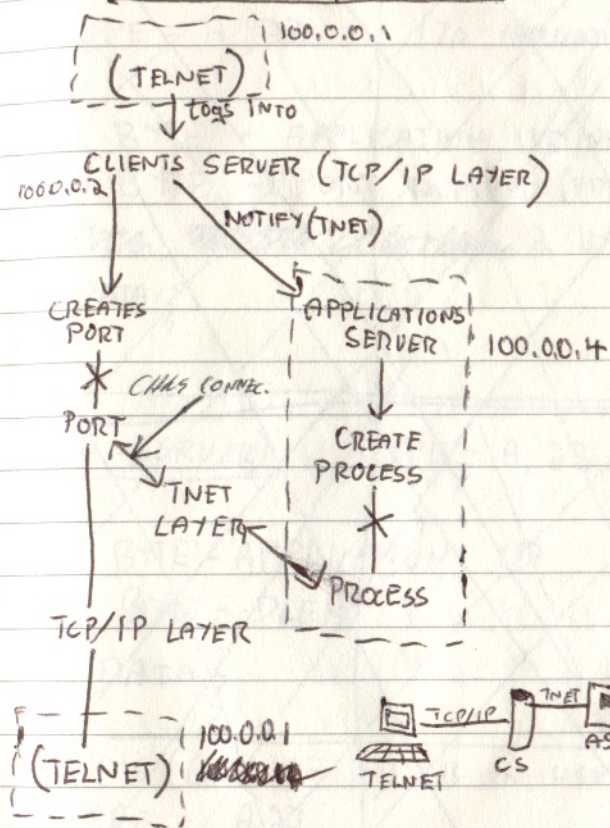 100.0.0.1
(TELNET)
Logs INTO
CLIENTS SERVER (TCP/IP LAYER)
100.0.0.2
NOTIFY (TNET)
CREATES
PORT
APPLICATIONS
SERVER
100.0.0.4
CONNEC.
PORT
CREATE
PROCESS
TNET
LAYER
PROCESS
TCP/IP LAYER
100.0.0.1
(TELNET)
TCP/IP
TNET
TELNET
CS
AS